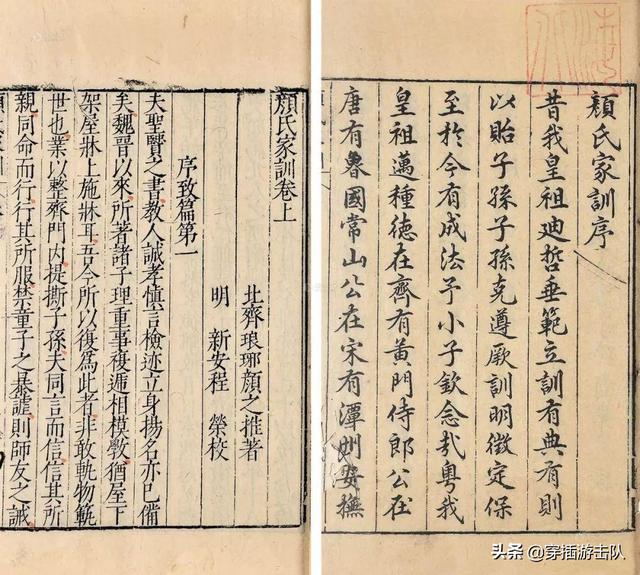 顏氏家訓序
昔我皇祖廸哲垂範立訓有典有則
以貽子孫子孫克遵厥訓明徵定保
至於今有成法予小子欽念哉粤我
皇祖邁種德在齊有黃門侍郎公在
唐有魯國常山公在宋有潭州安撫
顏氏家訓卷上
北齊琅琊顏之推著
明 新安程 榮校
序致篇第一
夫聖賢之書教人誠孝慎言檢迹立身揚名亦已備
矣魏晉以來所著諸子理重事複遞相模斆猶屋下
架屋牀上施牀耳吾今所以復爲此者非敢軌物範
世也業以整齊門内提撕子孫夫同言而信信其所
親同命而行行其所服禁童子之暴謔則師友之誡
头条 @穿插游击队